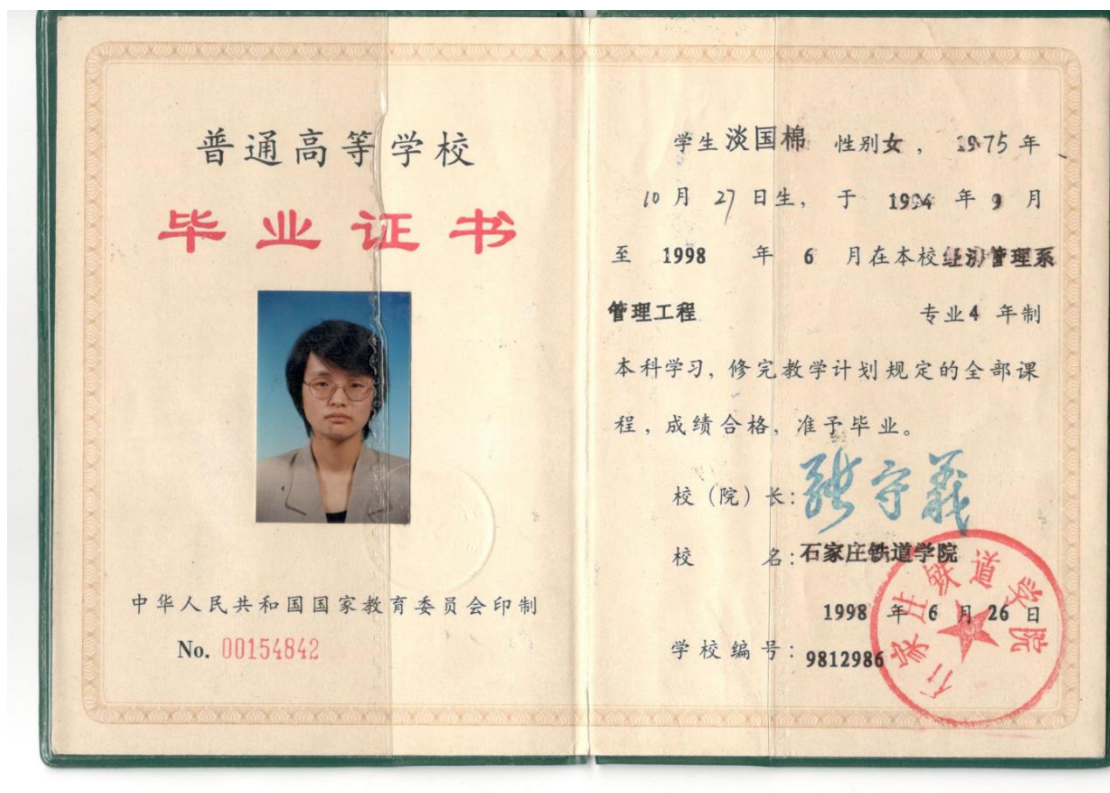 普通高等学校
毕业证书
中华人民共和国国家教育委员会印制
No. 00154842
学生淡国棉 性别女，1975年
10月27日生，于 1994 年 9 月
至 1998 年 6 月在本校经济管理系
管理工程 专业4 年制
本科学习，修完教学计划规定的全部课
程，成绩合格，准予毕业。
校（院）长：张守义
校 名：石家庄铁道学院
1998 年 6 月 26 日
学校编号：9812986
石家庄铁道学院